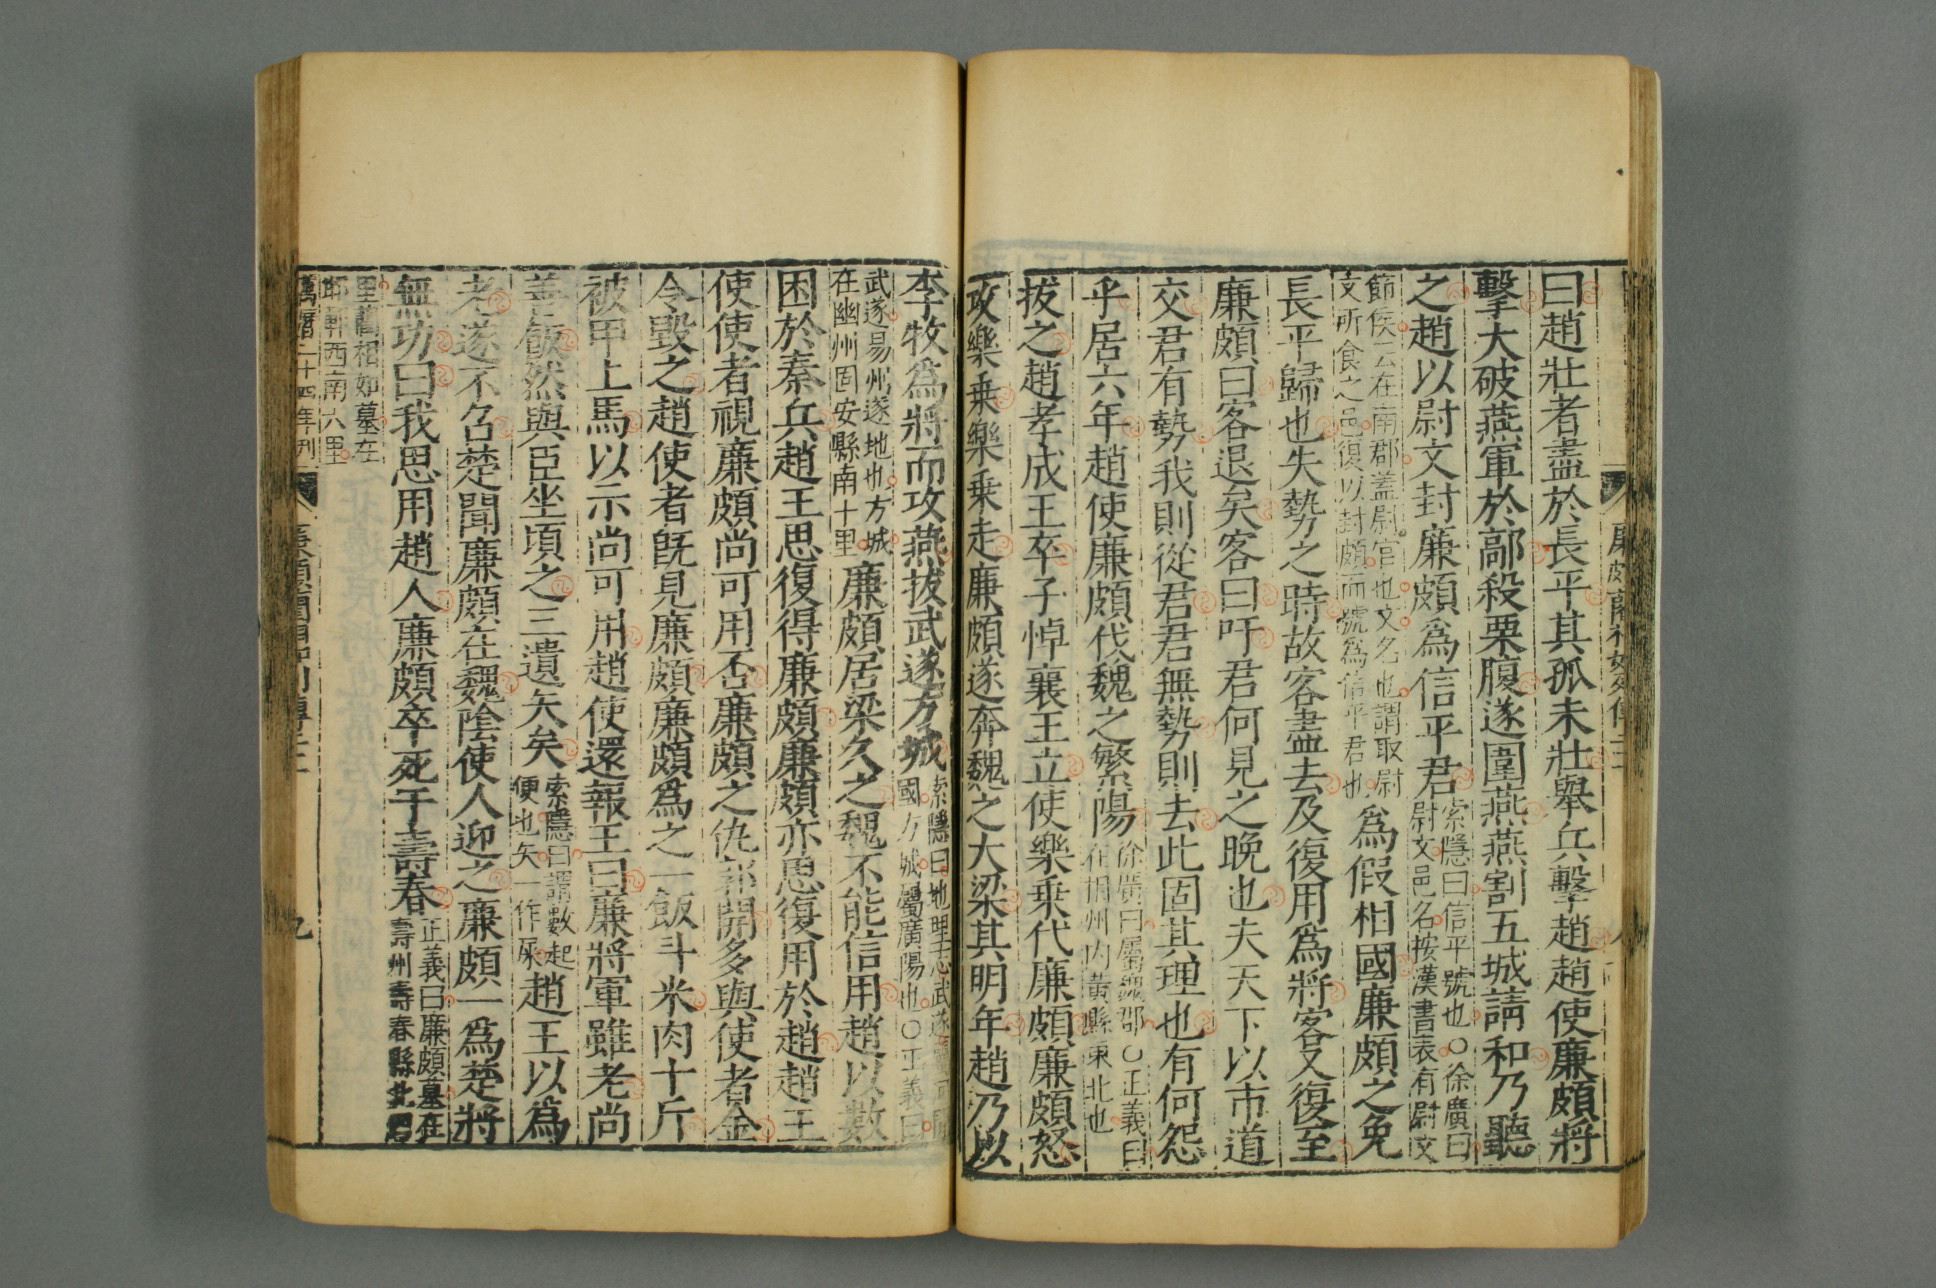 廉頗藺相如列傳二十一
八
曰趙壯者盡於長平其孤未壯舉兵擊趙趙使廉頗將
擊大破燕軍於鄗殺栗腹遂圍燕燕割五城請和乃聽
之趙以尉文封廉頗爲信平君
索隱曰信平號也○徐廣曰
尉文邑名按漢書表有尉文
節侯云在南郡蓋尉官也文名也謂取尉
文所食之邑復以封頗而號爲信平君也
爲假相國廉頗之免
長平歸也失勢之時故客盡去及復用爲將客又復至
廉頗曰客退矣客曰吁君何見之晚也夫天下以市道
交君有勢我則從君君無勢則去此固其理也有何怨
乎居六年趙使廉頗伐魏之繁陽
徐廣曰屬魏郡○正義曰
在相州內黃縣東北也
拔之趙孝成王卒子悼襄王立使樂乗代廉頗廉頗怒
攻樂乗樂乗走廉頗遂奔魏之大梁其明年趙乃以
李牧爲將而攻燕拔武遂方城
索隱曰地理志武遂屬河間
國方城屬廣陽也○正義曰
武遂易州遂地也方城
在幽州固安縣南十里
廉頗居梁久之魏不能信用趙以數
困於秦兵趙王思復得廉頗廉頗亦思復用於趙趙王
使使者視廉頗尚可用否廉頗之仇郭開多與使者金
令毀之趙使者旣見廉頗廉頗爲之一飯斗米肉十斤
被甲上馬以示尚可用趙使還報王曰廉將軍雖老尚
善飯然與臣坐頃之三遺矢矣
索隱曰謂數起
便也矢一作屎
趙王以爲
老遂不召楚聞廉頗在魏陰使人迎之廉頗一爲楚將
無功曰我思用趙人廉頗卒死于壽春
正義曰廉頗墓在
壽州壽春縣北四
里藺相如墓在
邯鄲西南六里
萬曆二十四年刊
九